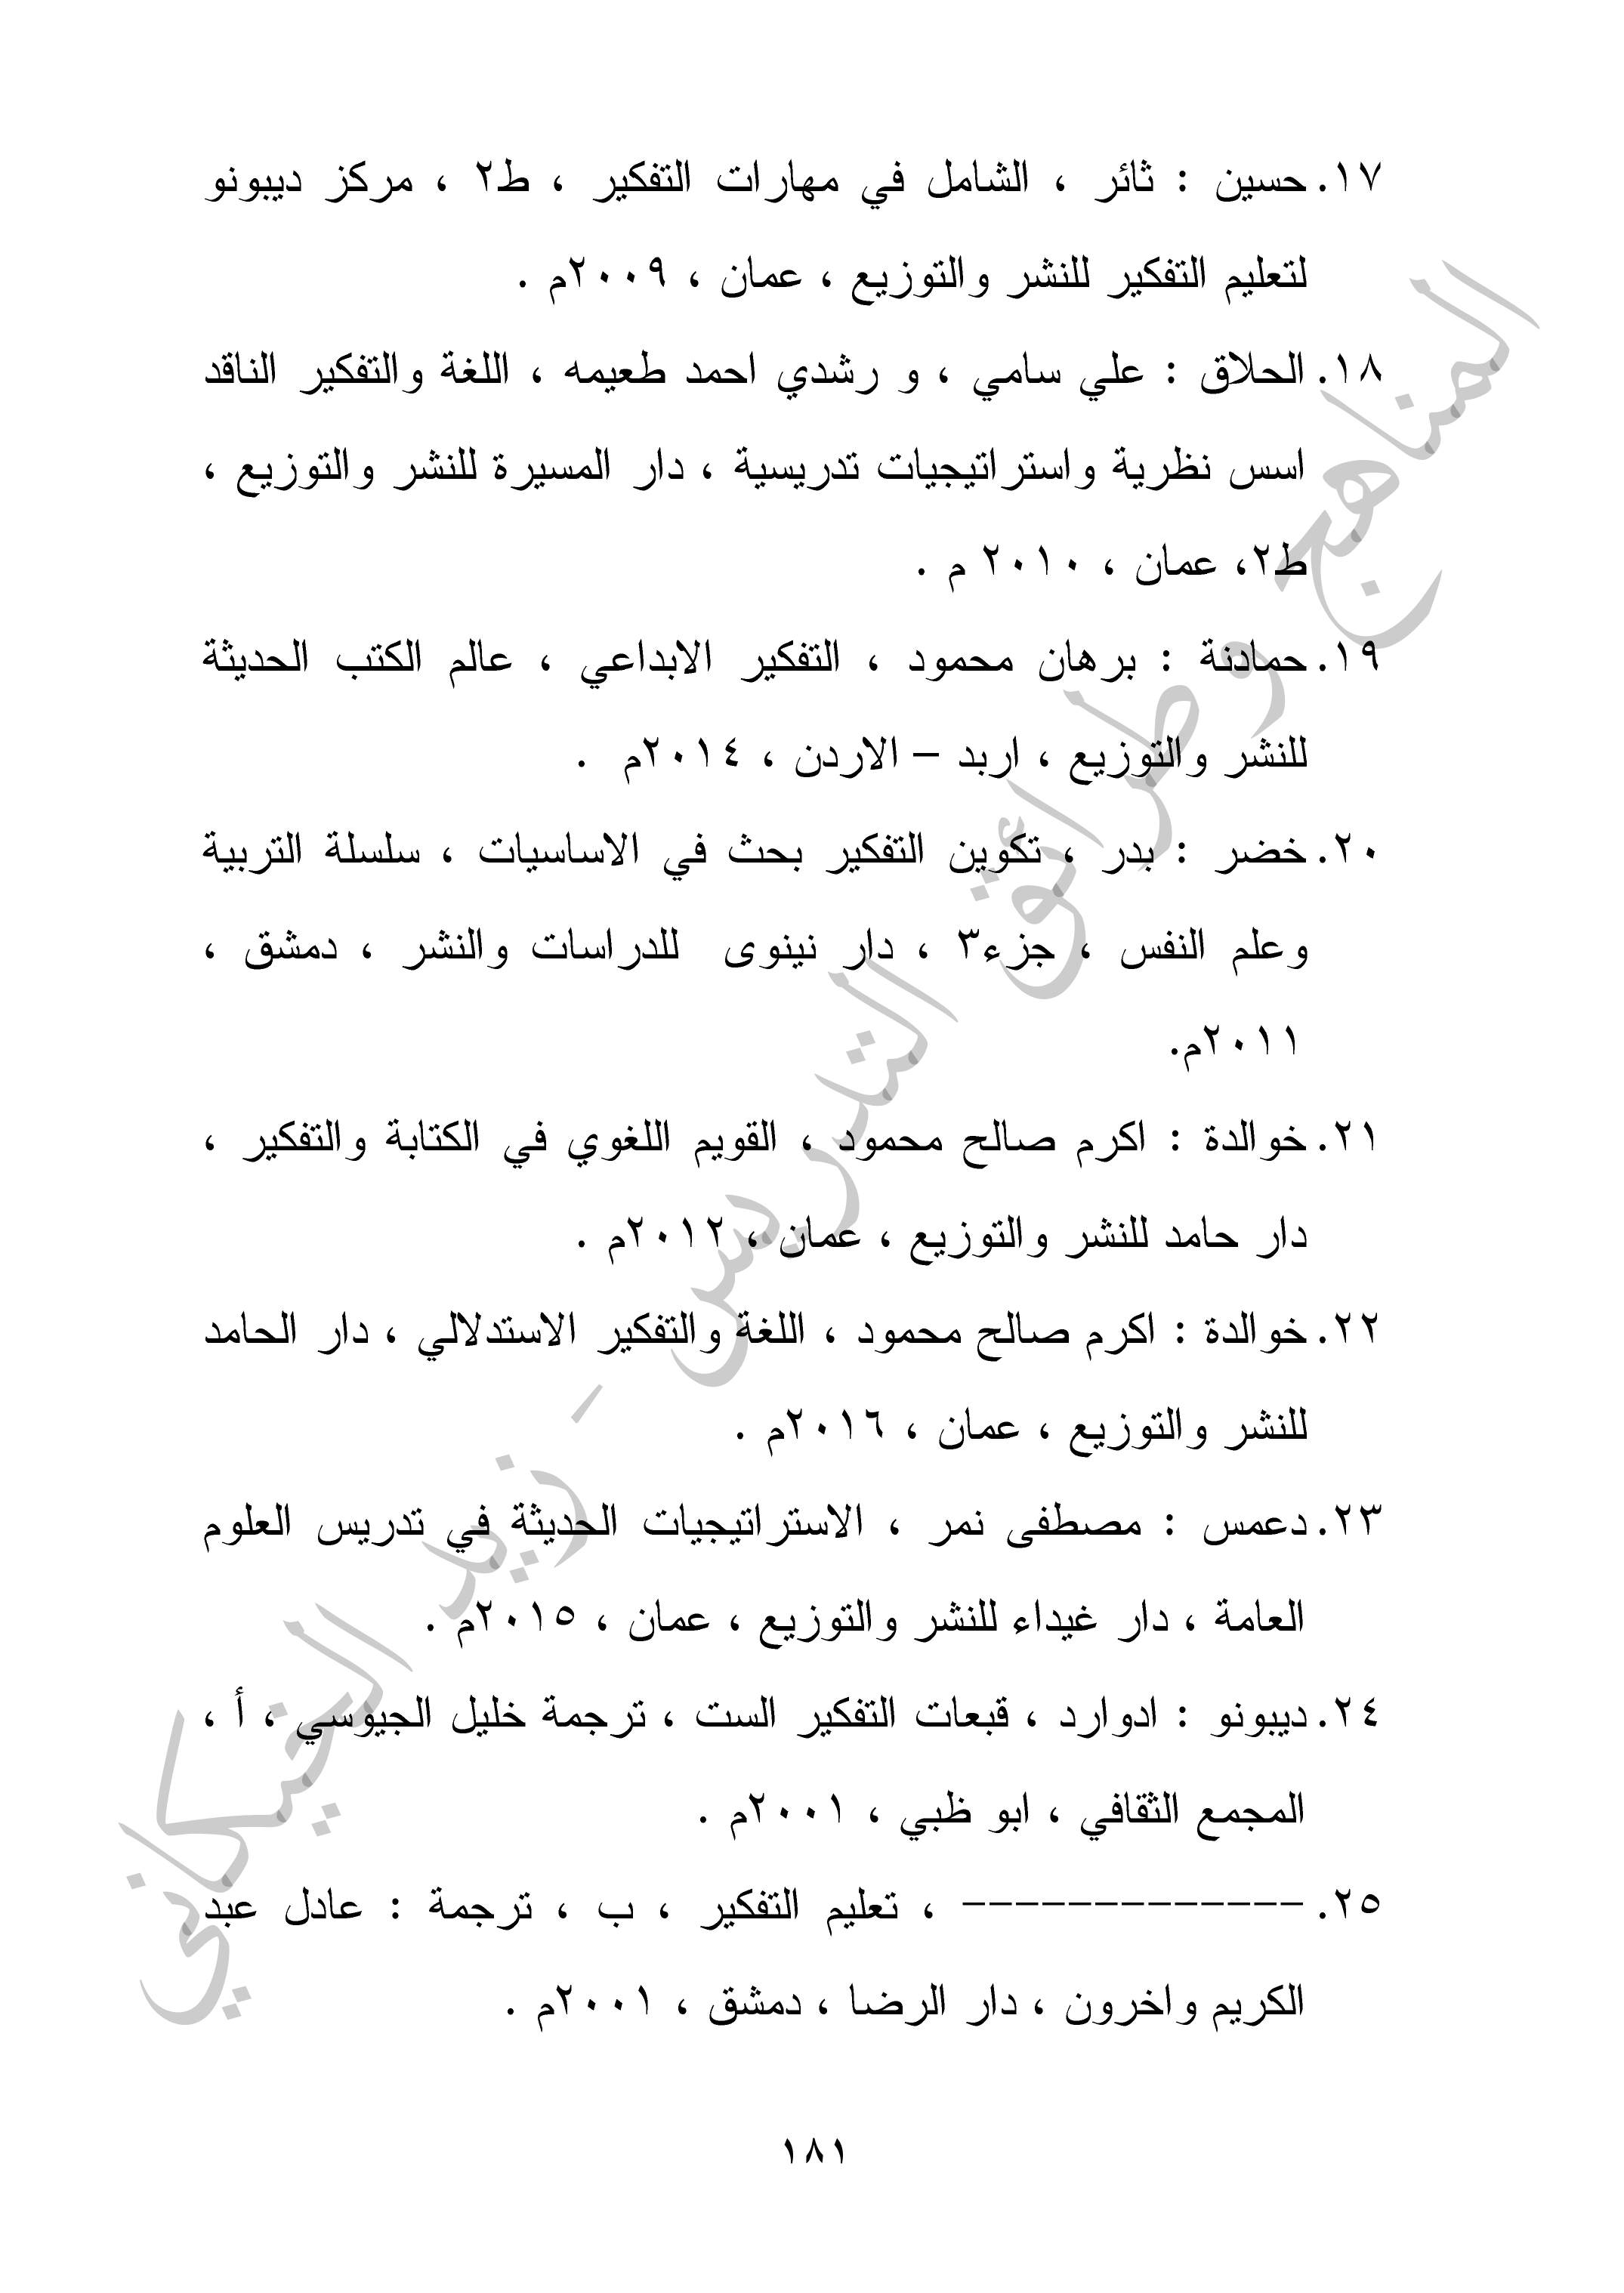 ١٧. حسين : ثائر ، الشامل في مهارات التفكير ، ط٢ ، مركز ديبونو
لتعليم التفكير للنشر والتوزيع ، عمان ، ٢٠٠٩م .
١٨. الحلاق : علي سامي ، و رشدي احمد طعيمه ، اللغة والتفكير الناقد
اسس نظرية واستراتيجيات تدريسية ، دار المسيرة للنشر والتوزيع ،
ط٢، عمان ، ٢٠١٠ م .
١٩. حمادنة : برهان محمود ، التفكير الابداعي ، عالم الكتب الحديثة
للنشر والتوزيع ، اربد – الاردن ، ٢٠١٤م .
٢٠. خضر : بدر ، تكوين التفكير بحث في الاساسيات ، سلسلة التربية
وعلم النفس ، جزء٣ ، دار نينوى للدراسات والنشر ، دمشق ،
٢٠١١م.
٢١. خوالدة : اكرم صالح محمود ، القويم اللغوي في الكتابة والتفكير ،
دار حامد للنشر والتوزيع ، عمان ، ٢٠١٢م .
٢٢. خوالدة : اكرم صالح محمود ، اللغة والتفكير الاستدلالي ، دار الحامد
للنشر والتوزيع ، عمان ، ٢٠١٦م .
٢٣. دعمس : مصطفى نمر ، الاستراتيجيات الحديثة في تدريس العلوم
العامة ، دار غيداء للنشر والتوزيع ، عمان ، ٢٠١٥م .
٢٤. ديبونو : ادوارد ، قبعات التفكير الست ، ترجمة خليل الجيوسي ، أ ،
المجمع الثقافي ، ابو ظبي ، ٢٠٠١م .
٢٥. ------------- ، تعليم التفكير ، ب ، ترجمة : عادل عبد
الكريم واخرون ، دار الرضا ، دمشق ، ٢٠٠١م .
١٨١
المناهج وطرائق التدريس - زيد الخيكاني